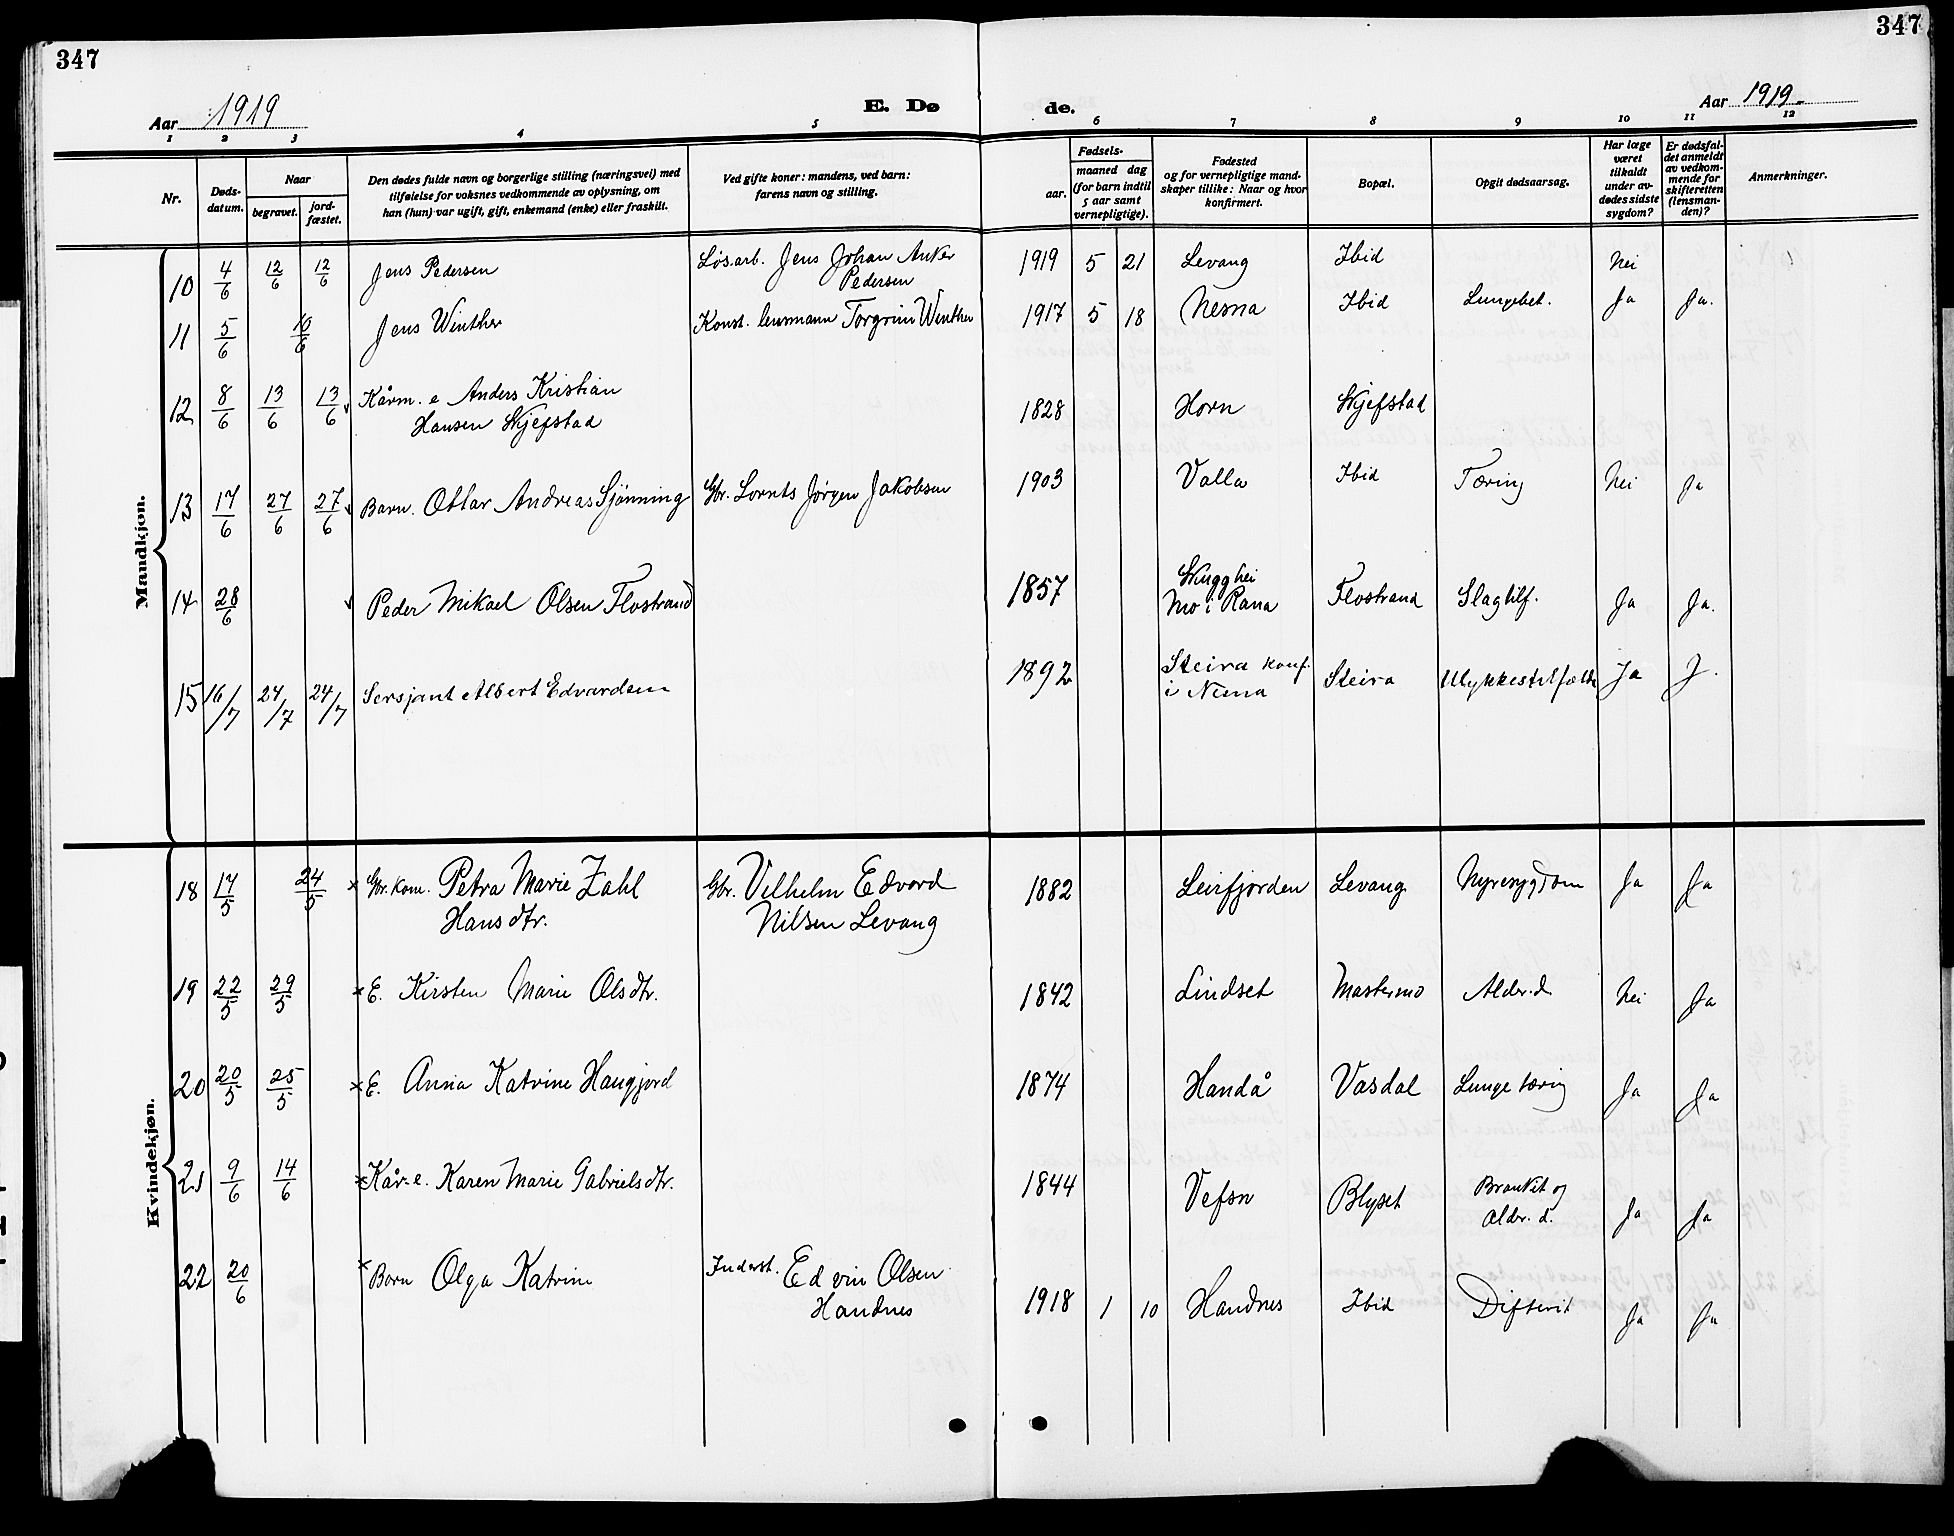 347
347
Aar 1919
E. Dø
de.
Aar 1919
1 2 3 4 5 6 7 8 9 10 11 12
Nr.
Døds-
datum.
Naar
begravet.
jord-
fæstet.
Den dødes fulde navn og borgerlige stilling (næringsvei) med
tilføielse for voksnes vedkommende av oplysning, om
han (hun) var ugift, gift, enkemand (enke) eller fraskilt.
Ved gifte koner: mandens, ved barn:
farens navn og stilling.
Fødsels-
aar.
maaned dag
(for barn indtil
5 aar samt
vernepligtige).
Fødested
og for vernepligtige mand-
skaper tillike: Naar og hvor
konfirmert.
Bopæl.
Opgit dødsaarsag.
Har læge
været
tilkaldt
under av-
dødes sidste
sygdom?
Er dødsfal-
det anmeldt
av vedkom-
mende for
skifteretten
(lensman-
den)?
Anmerkninger.
Mandkjøn.
10 4/6 12/6 12/6 Jens Pedersen Løsarb. Jens Johan Anker 1919 5 21 Levang Ibid Nei
Pedersen
11 5/6 10/6 Jens Winther Konst. lensmann Torgrim Winther 1917 5 18 Nesna Ibid Lungebet. Ja Ja.
12 8/6 13/6 13/6 Kårm. e Anders Kristian 1828 Horn Skjefstad
Hansen Skjefstad
13 17/6 27/6 27/6 Barn. Ottar Andreas Sjønning Gbr. Lornts Jørgen Jakobsen 1903 Valla Ibid Tæring Nei Ja
14 28/6 Peder Mikael Olsen Flostrand 1857 Skugghei
Mo i Rana Flostrand Slagtilf. Ja Ja.
15 16/7 24/7 24/7 Sersjant Albert Edvardsen 1892 Steira konf.
i Nesna Steira Ulykkestilfælde Ja J.
Kvindekjøn.
18 17/5 24/5 × Gbr. kone. Petra Marie Zahl Gbr. Vilhelm Edvard 1882 Leirfjorden Levang Nyresygdom Ja Ja
Hansdtr. Nilsen Levang
19 22/5 29/5 × E. Kirsten Marie Olsdtr. 1842 Lindset Mastermo Alder.d. Nei Ja
20 20/5 25/5 × E. Anna Katrine Haugjord 1874 Handå Vasdal Lungetæring Ja Ja
21 9/6 14/6 × Kår-e. Karen Marie Gabrielsdtr. 1844 Vefsn Blyset Bronkit og
alder. d. Ja Ja
22 20/6 × Barn Olga Katrine Inderst. Edvin Olsen 1918 1 10 Handnes Ibid Difterit Ja Ja
Handnes